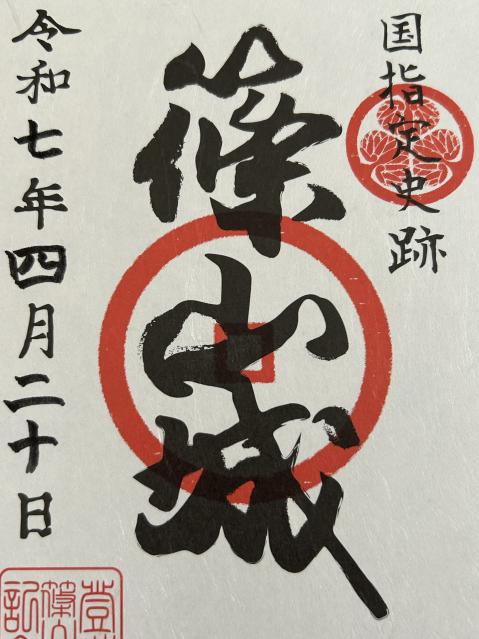 国指定史跡
篠山城
令和七年四月二十日
登
篠山
記